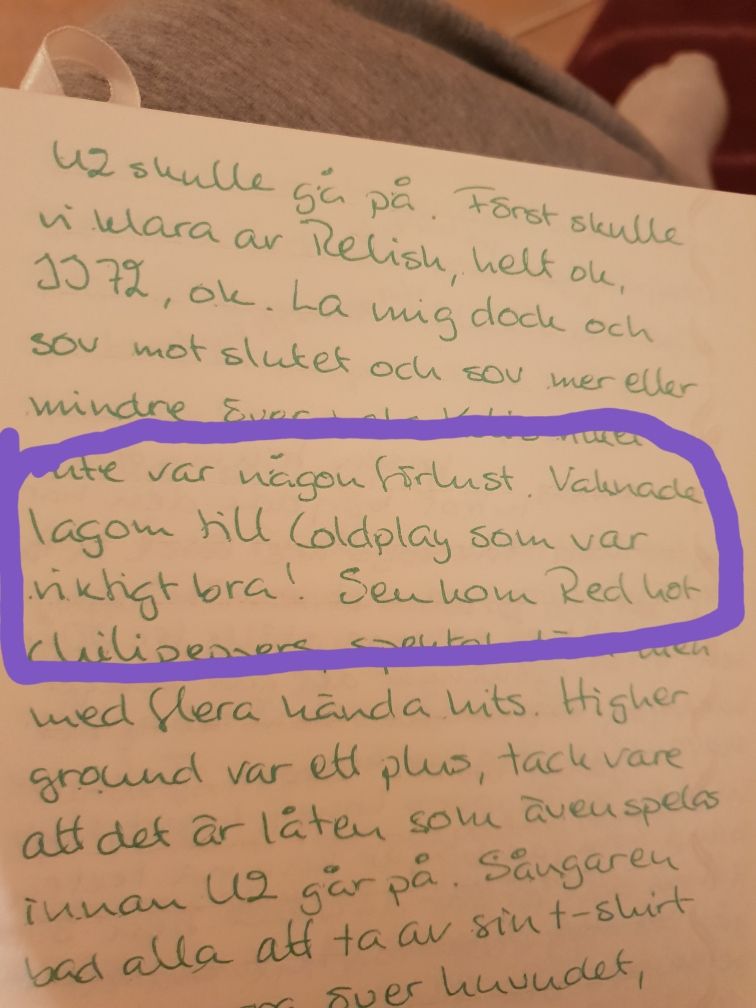 U2 skulle gå på. Först skulle
vi klara av Relish, helt ok,
JJ72, ok. La mig dock och
sov mot slutet och sov mer eller
mindre över
inte var någon förlust. Vaknade
lagom till Coldplay som var
riktigt bra! Sen kom Red hot
chilipeppers,
med flera kända hits. Higher
ground var ett plus, tack vare
att det är låten som även spelas
innan U2 går på. Sångaren
bad alla att ta av sin t-shirt
över huvudet,